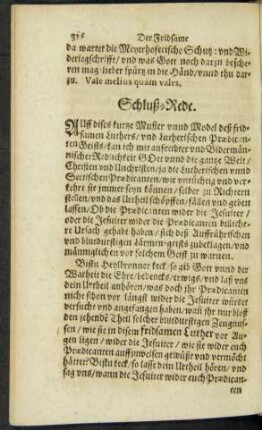 376 Der Fridsame
da wartet die Meyerhoferische Schutz: vnd Wi-
derlegschrifft / vnd was Gott noch darzu besche-
ren mag / lieber spürtz in die Händ / vnnd thu dar-
zu. Vale melius quàm vales.
Schluß-Rede.
AUff dises kurtze Muster vnnd Model deß frid-
samen Luthers / vnd Lutherischen Prædican-
ten Geists / kan ich mit auffrechter vnd Bidermän-
nischer Redlichkeit GOtt vnnd die gantze Welt /
Christen vnd Unchristen / ja die Lutherischen vnnd
Sectischen Prædicanten / wie vnrüchtig vnd ver-
kehrt sie immer seyn können / selber zu Richtern
stellen / vnd das Urtheil schöpffen / fällen vnd geben
lassen / Ob die Prædicanten wider die Jesuiter /
oder die Jesuiter wider die Prædicanten billiche-
re Ursach gehabt haben / sich deß Auffrührischen
vnd blutdurstigen Lärmen-geists zubeklagen / vnd
männiglichen vor solchem Geist zu warnen.
Bistu Heylbronner keck / so gib Gott vnnd der
Warheit die Ehr / bedencks / erwigs / vnd laß vns
dein Urtheil anhören / was doch ihr Prædicanten
nicht schon vor längst wider die Jesuiter würdet
versucht vnd angefangen haben / wañ ihr nur bloß
den zehende Theil solcher blutdurstigen Zeugnus-
sen / wie sie in disem fridsamen Luther vor Au-
gen ligen / wider die Jesuiter / wie sie wider euch
Prædicanten auffzuweisen gewüßt vnd vermöcht
hättet? Bistu keck / so lasse dein Urtheil hören / vnd
sag vns / wann die Jesuiter wider euch Prædican-
ten